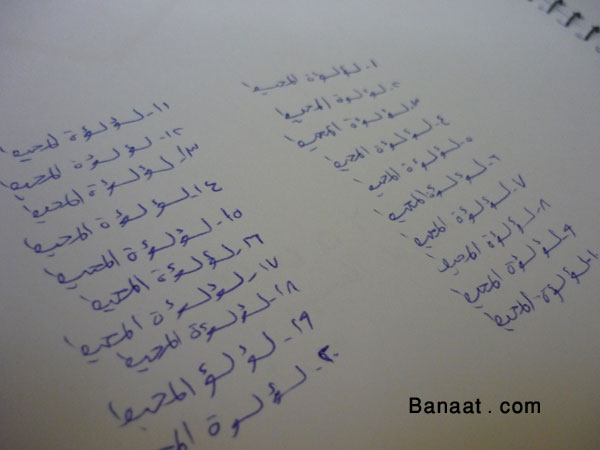 ١- لؤلؤة المحيط
٢- لؤلؤة المحيط
٣- لؤلؤة المحيط
٤- لؤلؤة المحيط
٥- لؤلؤة المحيط
٦- لؤلؤة المحيط
٧- لؤلؤة المحيط
٨- لؤلؤة المحيط
٩- لؤلؤة المحيط
١٠- لؤلؤة المحيط
١١- لؤلؤة المحيط
١٢- لؤلؤة المحيط
١٣- لؤلؤة المحيط
١٤- لؤلؤة المحيط
١٥- لؤلؤة المحيط
١٦- لؤلؤة المحيط
١٧- لؤلؤة المحيط
١٨- لؤلؤة المحيط
١٩- لؤلؤ المحيط
٢٠- لؤلوة
Banaat . com